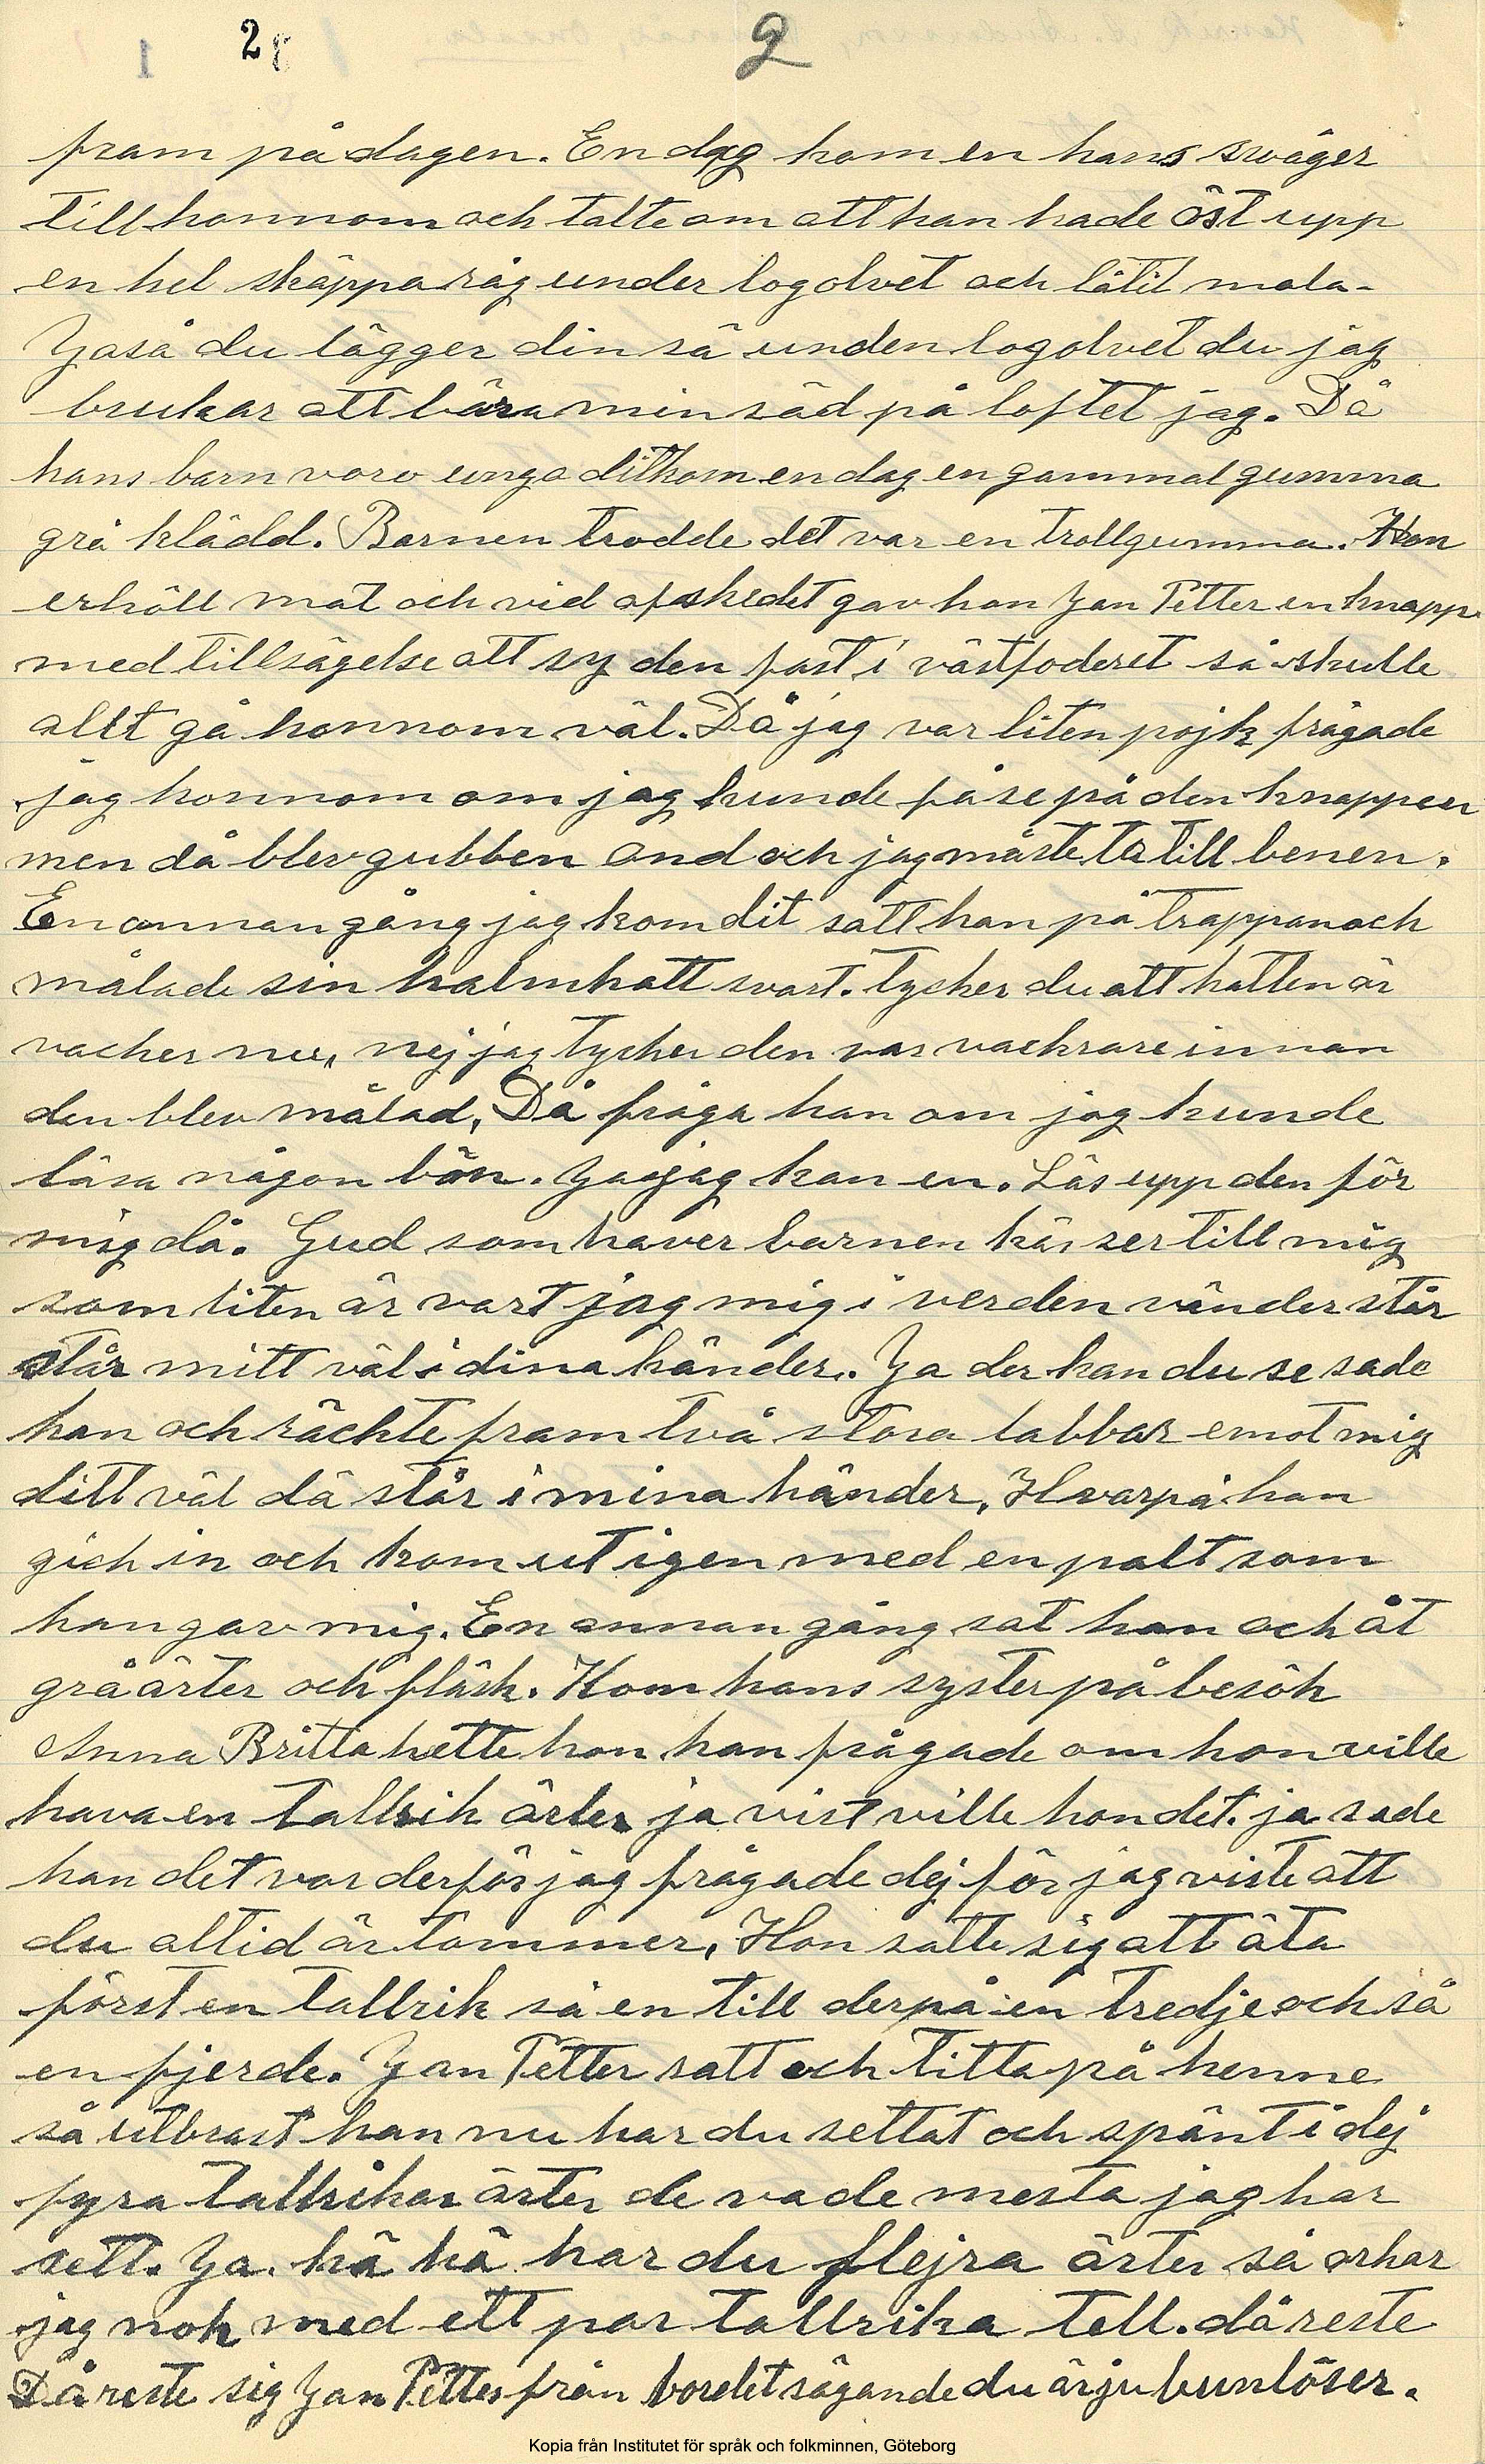 2
2
fram på dagen. En dag kom en hans svåger
till honnom och talte om att han hade öst upp
en hel skäppa råg under logolvet och låtit mala.
Jaså du lägger din sä under logolvet du jag
brukar att bära min säd på loftet jag. Då
hans barn voro unga ditkom en dag en gammal gumma
grå klädd. Barnen trodde det var en trollgumma. Hon
erhöll mat och vid afskedet gav hon Jan Petter en knapp
med tillsägelse att sy den fast i västfoderet så skulle
allt gå honnom väl. Då jag var liten pojk frågade
jag honnom om jag kunde få se på den knappen
men då blev gubben ond och jag måste ta till benen.
En annan gång jag kom dit satt han på trappan och
målade sin halmhatt svart. tycker du att hatten är
vacker nu, nej jag tycker den var vackrare innan
den blev målad, Då fråga han om jag kunde
läsa någon bön. Ja jag kan en. Läs upp den för
mig då. Gud som haver barnen kär ser till mig
som liten är vart jag mig i verden vänder står
står mitt väl i dina händer. Ja der kan du se sade
han och räckte fram två stora labbar emot mig
ditt väl då står i mina händer, Hvarpå han
gick in och kom ut igen med en palt som
han gav mig. En annan gång sat han och åt
gråärter och fläsk. Kom hans syster på besök
Anna Britta hette hon han frågade om hon ville
hava en tallrik ärter ja vist ville hon det. ja sade
han det var derför jag frågade dej för jag viste att
du altid är tommer, Hon satte sig att äta
först en tallrik så en till derpå en tredje och så
en fjerde. Jan Petter satt och titta på henne
så utbrast han nu har du settat och spänt i dej
fyra tallrikar ärter de va de mesta jag har
sett. Ja. hä hä har du flejra ärter så orkar
jag nok med ett par tallrika tell. då reste
Då reste sig Jan Petter från bordet sägande du är ju bunlöser.
Kopia från Institutet för språk och folkminnen, Göteborg